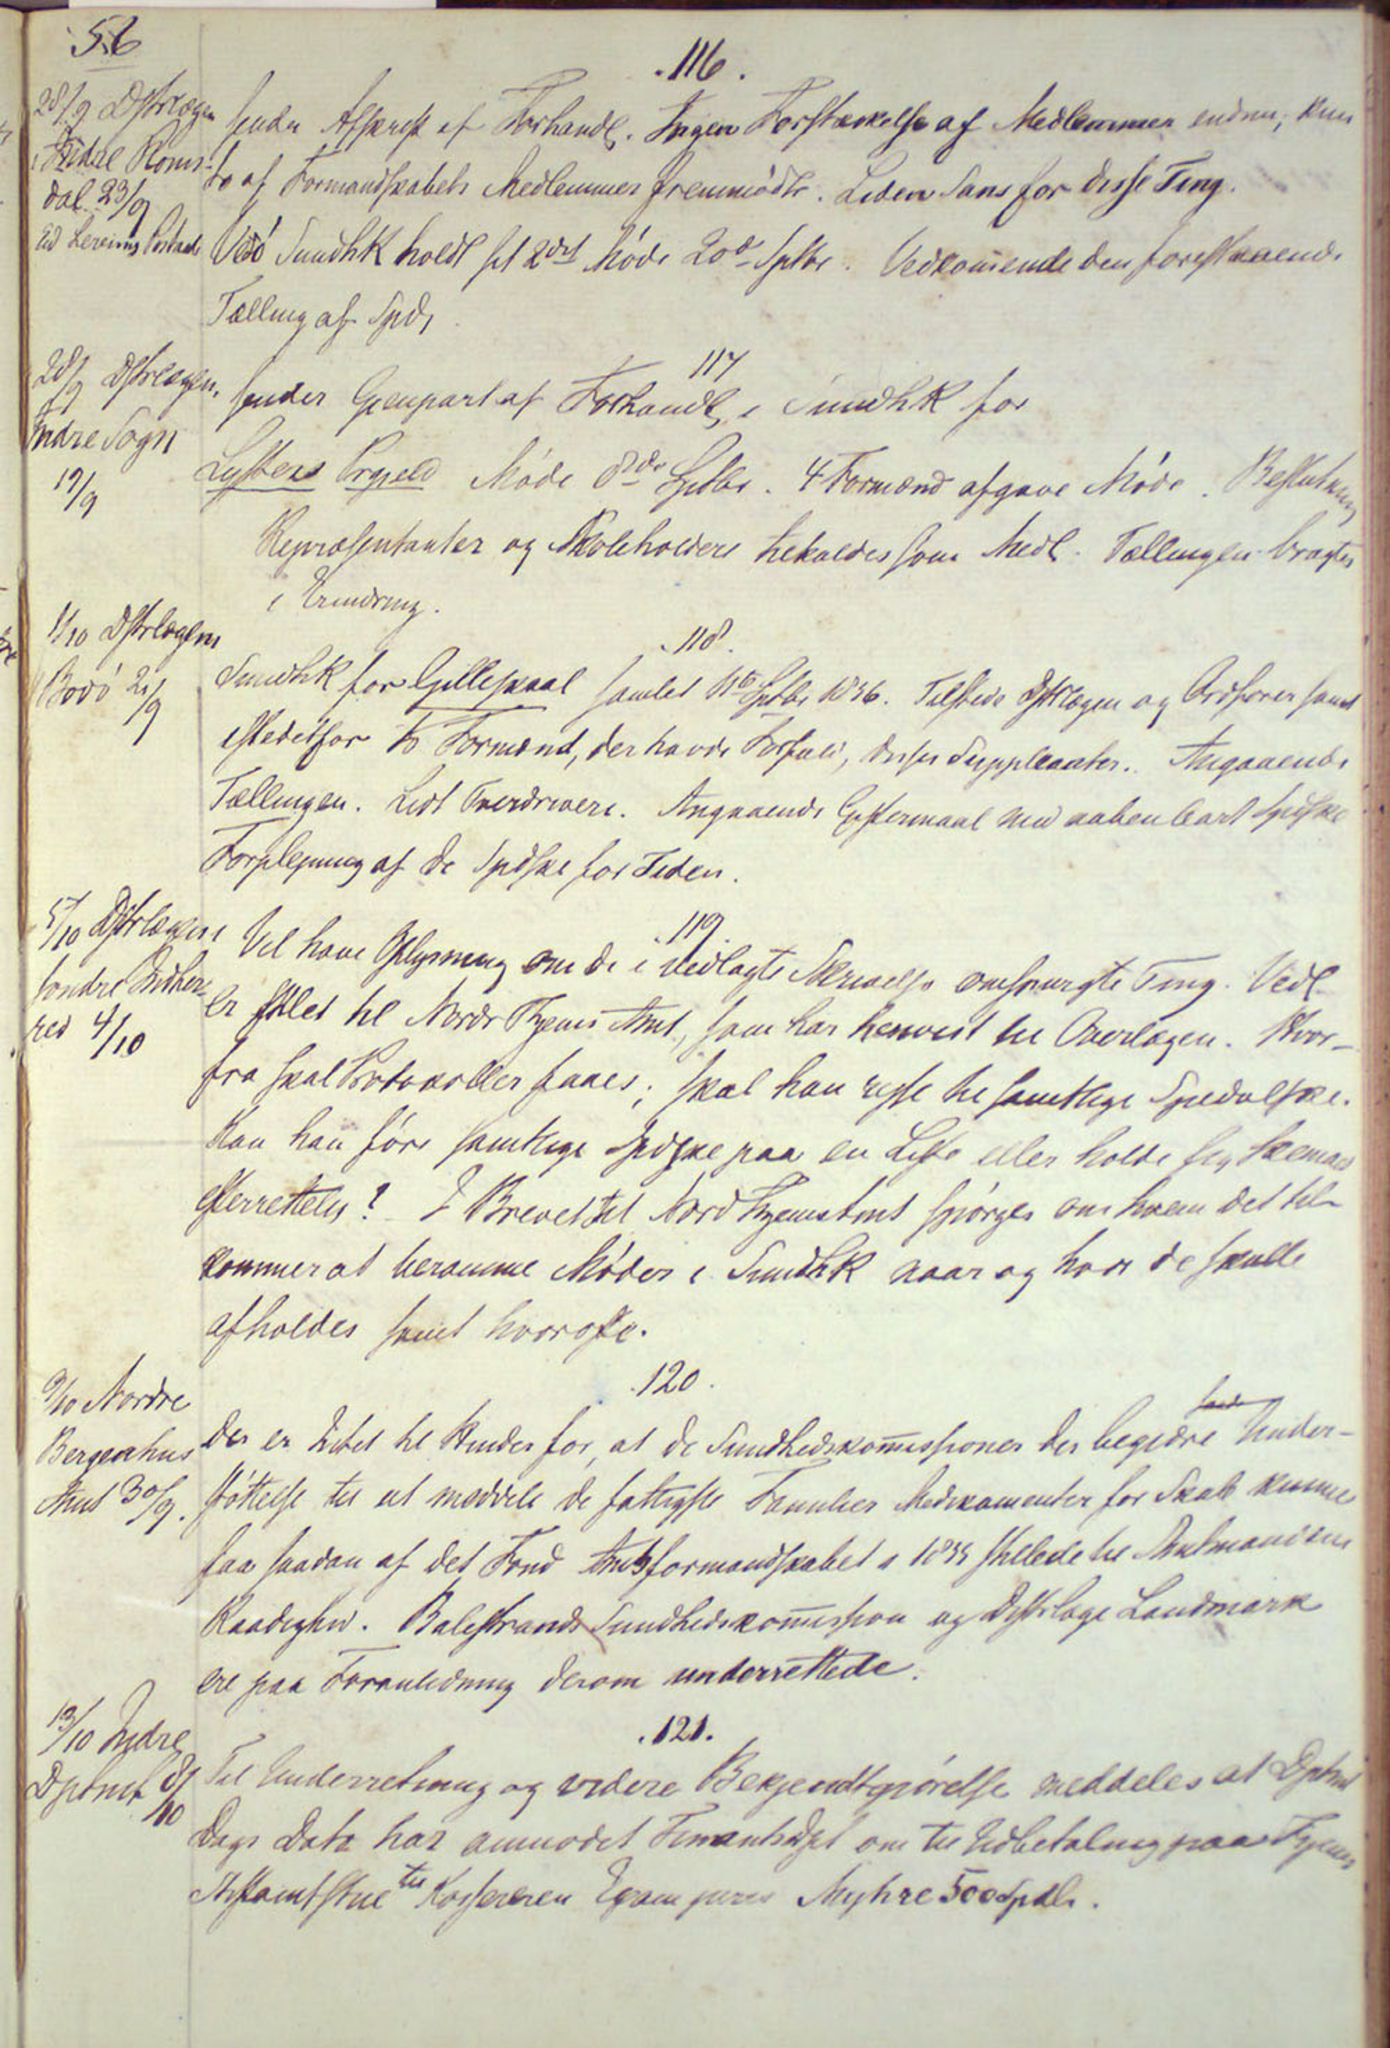 56
.116.
28/9 Dstrlægen
i Indre Roms-
dal 23/9
sender Afskrift af Forhandl. Ingen Forstærkelse af Medlemmer endnu, kun
to af Formandskabets Medlemmer fremmødte. Liden Sans for disse Ting.
Vedø Sundhk holdt sit 2det Møde 20de Sptbr. Vedkommende den forestaaende
Tælling af Spd,
117
28/9 Dstrlægen,
Indre Sogn
19/9
sender Genpart af Forhandl, i Sundhk for
Lysters Prgjeld Møde 8de Sptbr. 4 Formænd afgave Møde. Beslutning
Repræsentanter og Skoleholdere tilkaldes som Medl. Tællingen bragtes
i Erindring.
.118.
1/10 Dstrlægen
i Bodø 21/9
Sundhk for Gilleskaal samlet 11te Sptbr 1856. Tilstede Dstrlægen og Ordfører samt
istedetfor to Formænd, der havde Forfald, disses Suppleanter. Angaaende
Tællingen. Lidt Overdrivere. Angaaende Giftermaal med aabenbart Spdske
Forplejning af de Spdske for Tiden.
.119.
5/10 Dstrlægen i
søndre Inder-
red 4/10
Vil have Oplysning om de i vedlagte Skrivelse omspurgte Ting. Vedl.
er stilet til Nordr Thjems Amt, som har henvist til Overlægen. Hvor-
fra skal Protokoller faaes; skal han rejse til samtlige Spedalske.
Kan han føre samtlige Spdske paa en Liste eller holde sig Skemaet
efterrettelig? I Brevet til Nord Thjems Amt spørges om hvem det til-
kommer at beramme Møder i Sundhk naar og hvor de skulle
afholdes samt hvorofte.
.120.
9/10 Nordre
Bergenhus
Amt 30/9.
Der er Intet til Hinder for, at de Sundhedskommissioner der begjære Under-
støttelse til at meddele de fattigste Familier Medikamenter for Skab kunne
faa saadan af det Fond Amtsformandskabet i 1855 stillede til Amtmandens
Raadighed. Balestrands Sundhedskommission og Dstrlæge Landmark
ere paa Foranledning derom underrettede.
.121.
13/10 Indre
Dptmt 8/10
Til Underretning og videre Bekjendtgjørelse meddeles at Dptmt
Dags Dato har anmodet Finantsdpt om til Udbetaling paa Thjems
Stiftamtstue til Kasereren Myhre 500 Spdlr.